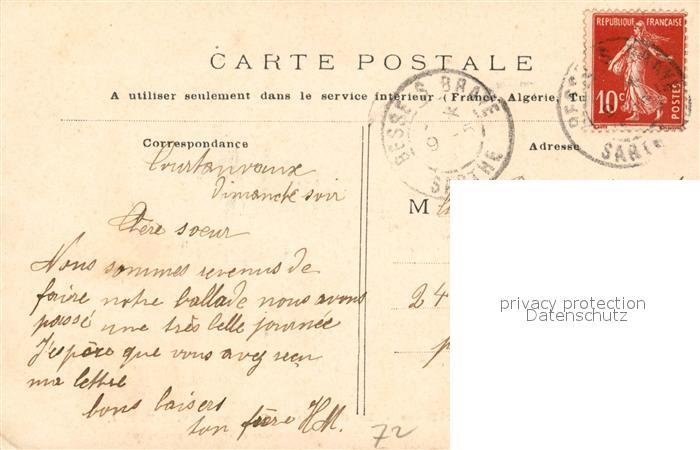 CARTE POSTALE
A utiliser seulement dans le service intérieur (France, Algérie, Tu
REPUBLIQUE FRANÇAISE
10c
POSTES
BESSE-S-BRAYE
9
SARTHE
SARTHE
Correspondance
Adresse
Courtanvaux
Dimanche soir
M
Chère soeur
Nous sommes revenus de
faire notre ballade nous avons
passé une très belle journée
J'espère que vous avez reçu
ma lettre
bons baisers
ton frère HM.
24
72
privacy protection
Datenschutz